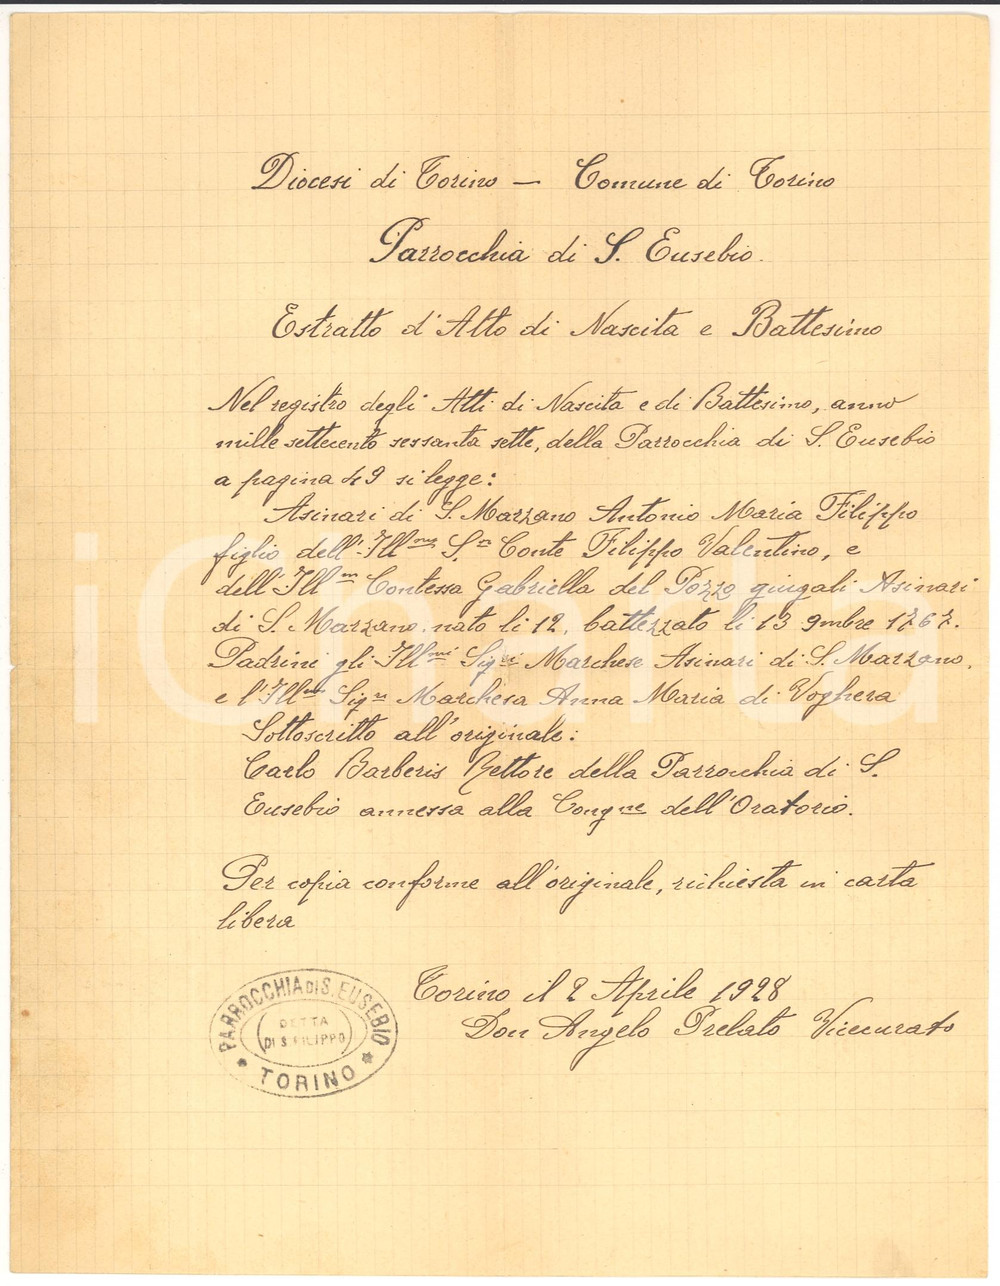 Diocesi di Torino — Comune di Torino
Parrocchia di S. Eusebio.
Estratto d'Atto di Nascita e Battesimo
Nel registro degli Atti di Nascita e di Battesimo, anno
mille settecento sessanta sette, della Parrocchia di S. Eusebio
a pagina 49 si legge:
Asinari di S. Marzano Antonio Maria Filippo
figlio dell'Illmo Sr Conte Filippo Valentino, e
dell'Illm Contessa Gabriella del Pozzo giugali Asinari
di S. Marzano, nato li 12, battezzato li 13 9mbre 1767.
Padrini gli Illmi Sigri Marchese Asinari di S. Marzano,
e l'Illma Sigra Marchesa Anna Maria di Voghera
Sottoscritto all'originale:
Carlo Barberis Rettore della Parrocchia di S.
Eusebio annessa alla Congne dell'Oratorio.
Per copia conforme all'originale, richiesta in carta
libera
Torino il 2 Aprile 1928
Don Angelo Prelato Vicecurato
PARROCCHIA DI S. EUSEBIO
(DETTA
DI S. FILIPPO)
* TORINO *
iCharta